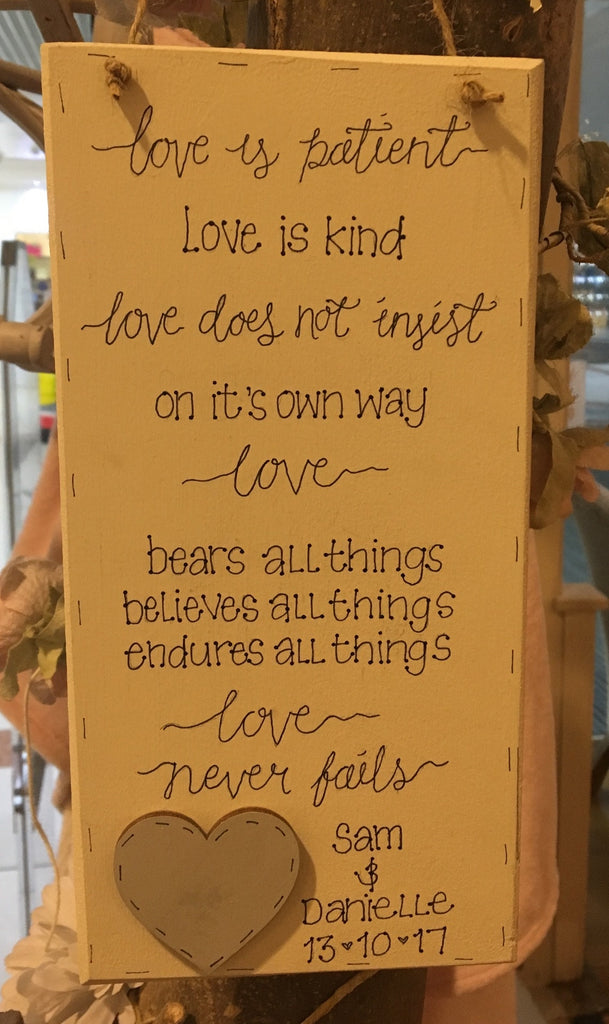 love is patient
Love is kind
love does not insist
on it's own way
love
bears all things
believes all things
endures all things
love
never fails
Sam
&
Danielle
13♥10♥17